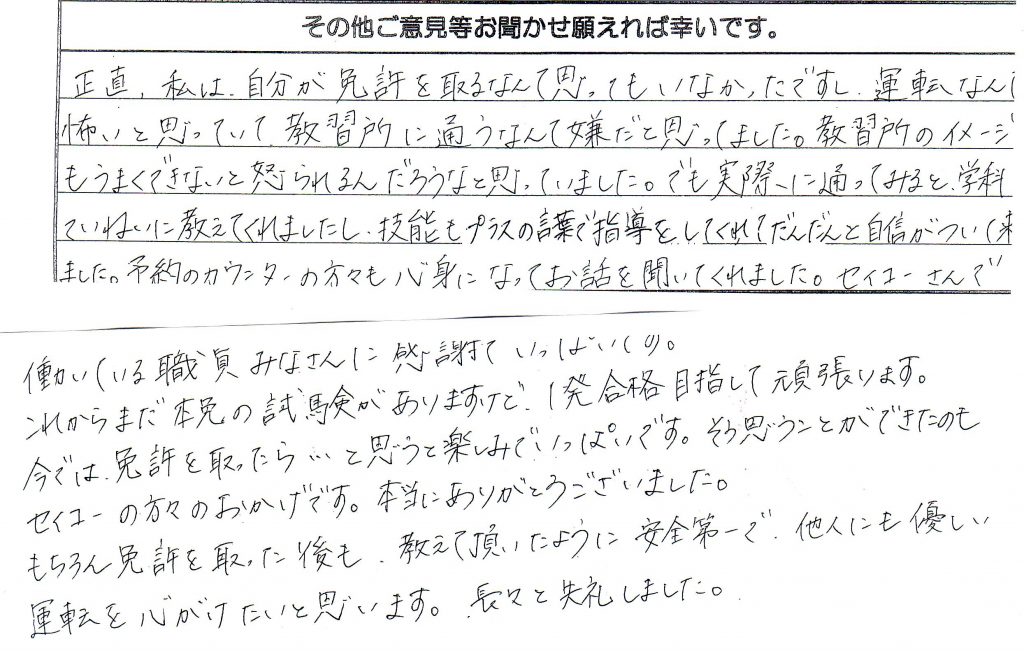 その他ご意見等お聞かせ願えれば幸いです。
正直、私は、自分が免許を取るなんて思ってもいなかったですし、運転なんて
怖いと思っていて、教習所に通うなんて嫌だと思ってました。教習所のイメージ
もうまくできないと怒られるんだろうなと思っていました。でも実際に通ってみると、学科
ていねいに教えてくれましたし、技能もプラスの言葉で指導をしてくれてだんだんと自信がついて来
ました。予約のカウンターの方々も心身になってお話を聞いてくれました。セイコーさんで
働いている職員みなさんに感謝で いっぱい
これからまだ本免の試験がありますけど、1発合格目指して頑張ります。
今では、免許を取ったら…と思うと楽しみでいっぱいです。そう思うことができたのも
セイコーの方々のおかげです。本当にありがとうございました。
もちろん免許を取った後も、教えて頂いたように安全第一で、他人にも優しい
運転を心がけたいと思います。長々と失礼しました。